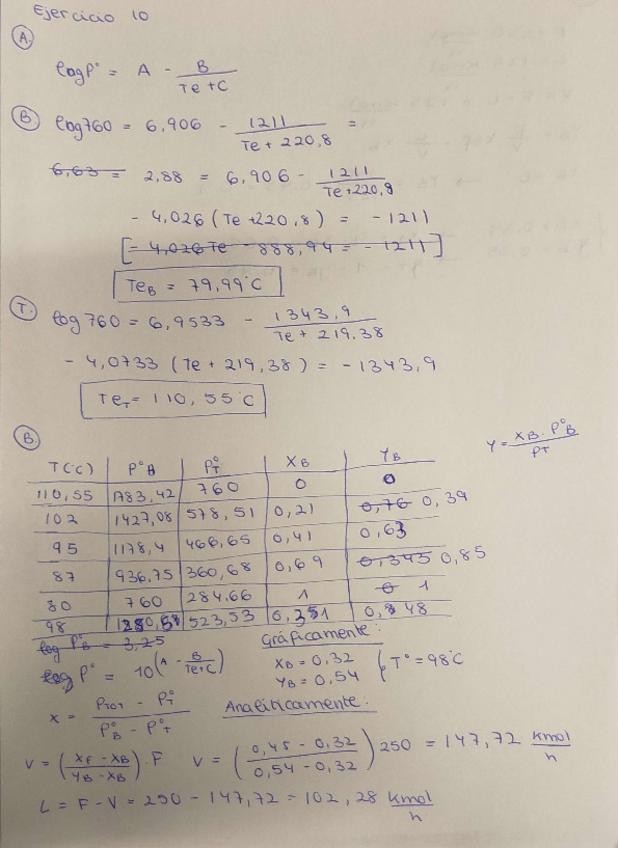 Ejercicio 10
A.
log P° = A - B / Te + C
B log 760 = 6,906 - 1211 / Te + 220,8 =
6,63 = 2,88 = 6,906 - 1211 / Te + 220,8
- 4,026 (Te + 220,8) = - 1211
[- 4,026 Te - 888,94 = - 1211]
Te_B = 79,99°C
T. log 760 = 6,9533 - 1343,9 / Te + 219,38
- 4,0733 (Te + 219,38) = - 1343,9
Te_T = 110,55°C
B.
T(°C) P°B P°T XB YB y = XB · P°B / PT
110,55 1783,42 760 0 0
102 1427,08 578,51 0,21 0,76 0,39
95 1178,4 466,65 0,41 0,63
87 936,75 360,68 0,69 0,345 0,85
80 760 284,66 1 0 1
98 523,53
log P°B = 3,25 Gráficamente:
log P° = 10^(A - B / Te+C) XB = 0,32 YB = 0,54 T° = 98°C
X = PTOT - P°T / P°B - P°T Analíticamente:
V = (XF - XB / YB - XB) · F V = (0,45 - 0,32 / 0,54 - 0,32) 250 = 147,72 kmol / h
L = F - V = 250 - 147,72 = 102,28 kmol / h